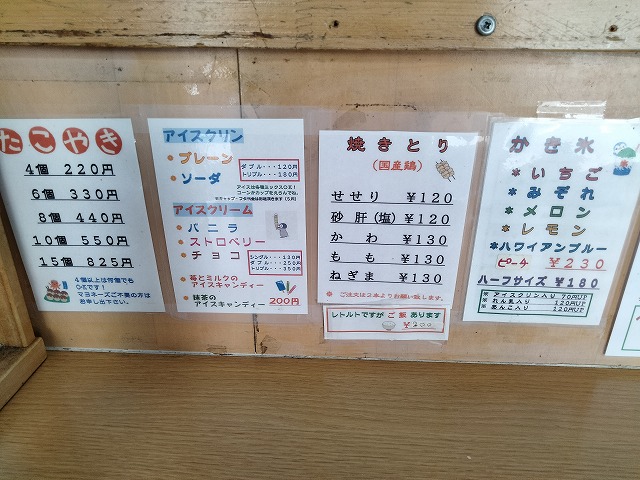 たこやき
4個 220円
6個 330円
8個 440円
10個 550円
15個 825円
4個以上は何個でも
OKです！
マヨネーズご不要の方は
お申し出下さい。
アイスクリン
・プレーン
・ソーダ
ダブル・・・120円
トリプル・・・180円
アイスは各種ミックスOK！
コーンかカップをえらんでね。
アイスクリーム
・バニラ
・ストロベリー
・チョコ
シングル・・・130円
ダブル・・・250円
トリプル・・・350円
・苺とミルクの
アイスキャンディー
・抹茶の
アイスキャンディー
200円
焼きとり
(国産鶏)
せせり ¥120
砂肝(塩) ¥120
かわ ¥130
もも ¥130
ねぎま ¥130
＊ご注文は2本よりお願い致します。
レトルトですが ご飯 あります
¥200
かき氷
＊いちご
＊みぞれ
＊メロン
＊レモン
＊ハワイアンブルー
ピーチ ¥230
ハーフサイズ ¥180
※アイスクリン入り 70円UP
※れん乳入り 120円UP
※あんこ入り 120円UP